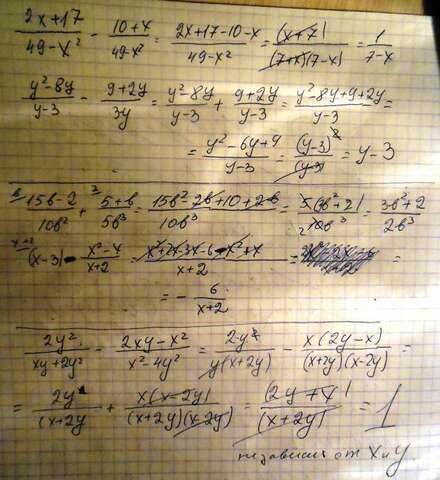 (2x+17)/(49-x²) - (10+x)/(49-x²) = (2x+17-10-x)/(49-x²) = (x+7)/((7+x)(7-x)) = 1/(7-x)
(y²-8y)/(y-3) - (9+2y)/(3y) = (y²-8y)/(y-3) + (9+2y)/(y-3) = (y²-8y+9+2y)/(y-3) =
= (y²-6y+9)/(y-3) = (y-3)²/(y-3) = y-3
(15b-2)/(10b²) + (5+b)/(5b³) = (15b²-2b+10+2b)/(10b³) = 5(3b²+2)/(10b³) = (3b²+2)/(2b³)
(x-3) - (x²-4)/(x+2) = (x²+2x-3x-6-x²+x)/(x+2) = =
= - 6/(x+2)
2y²/(xy+2y²) - (2xy-x²)/(x²-4y²) = 2y²/(y(x+2y)) - x(2y-x)/((x+2y)(x-2y)) =
= 2y/(x+2y + x(x-2y)/((x+2y)(x-2y)) = (2y+x)/(x+2y) = 1
от x и y